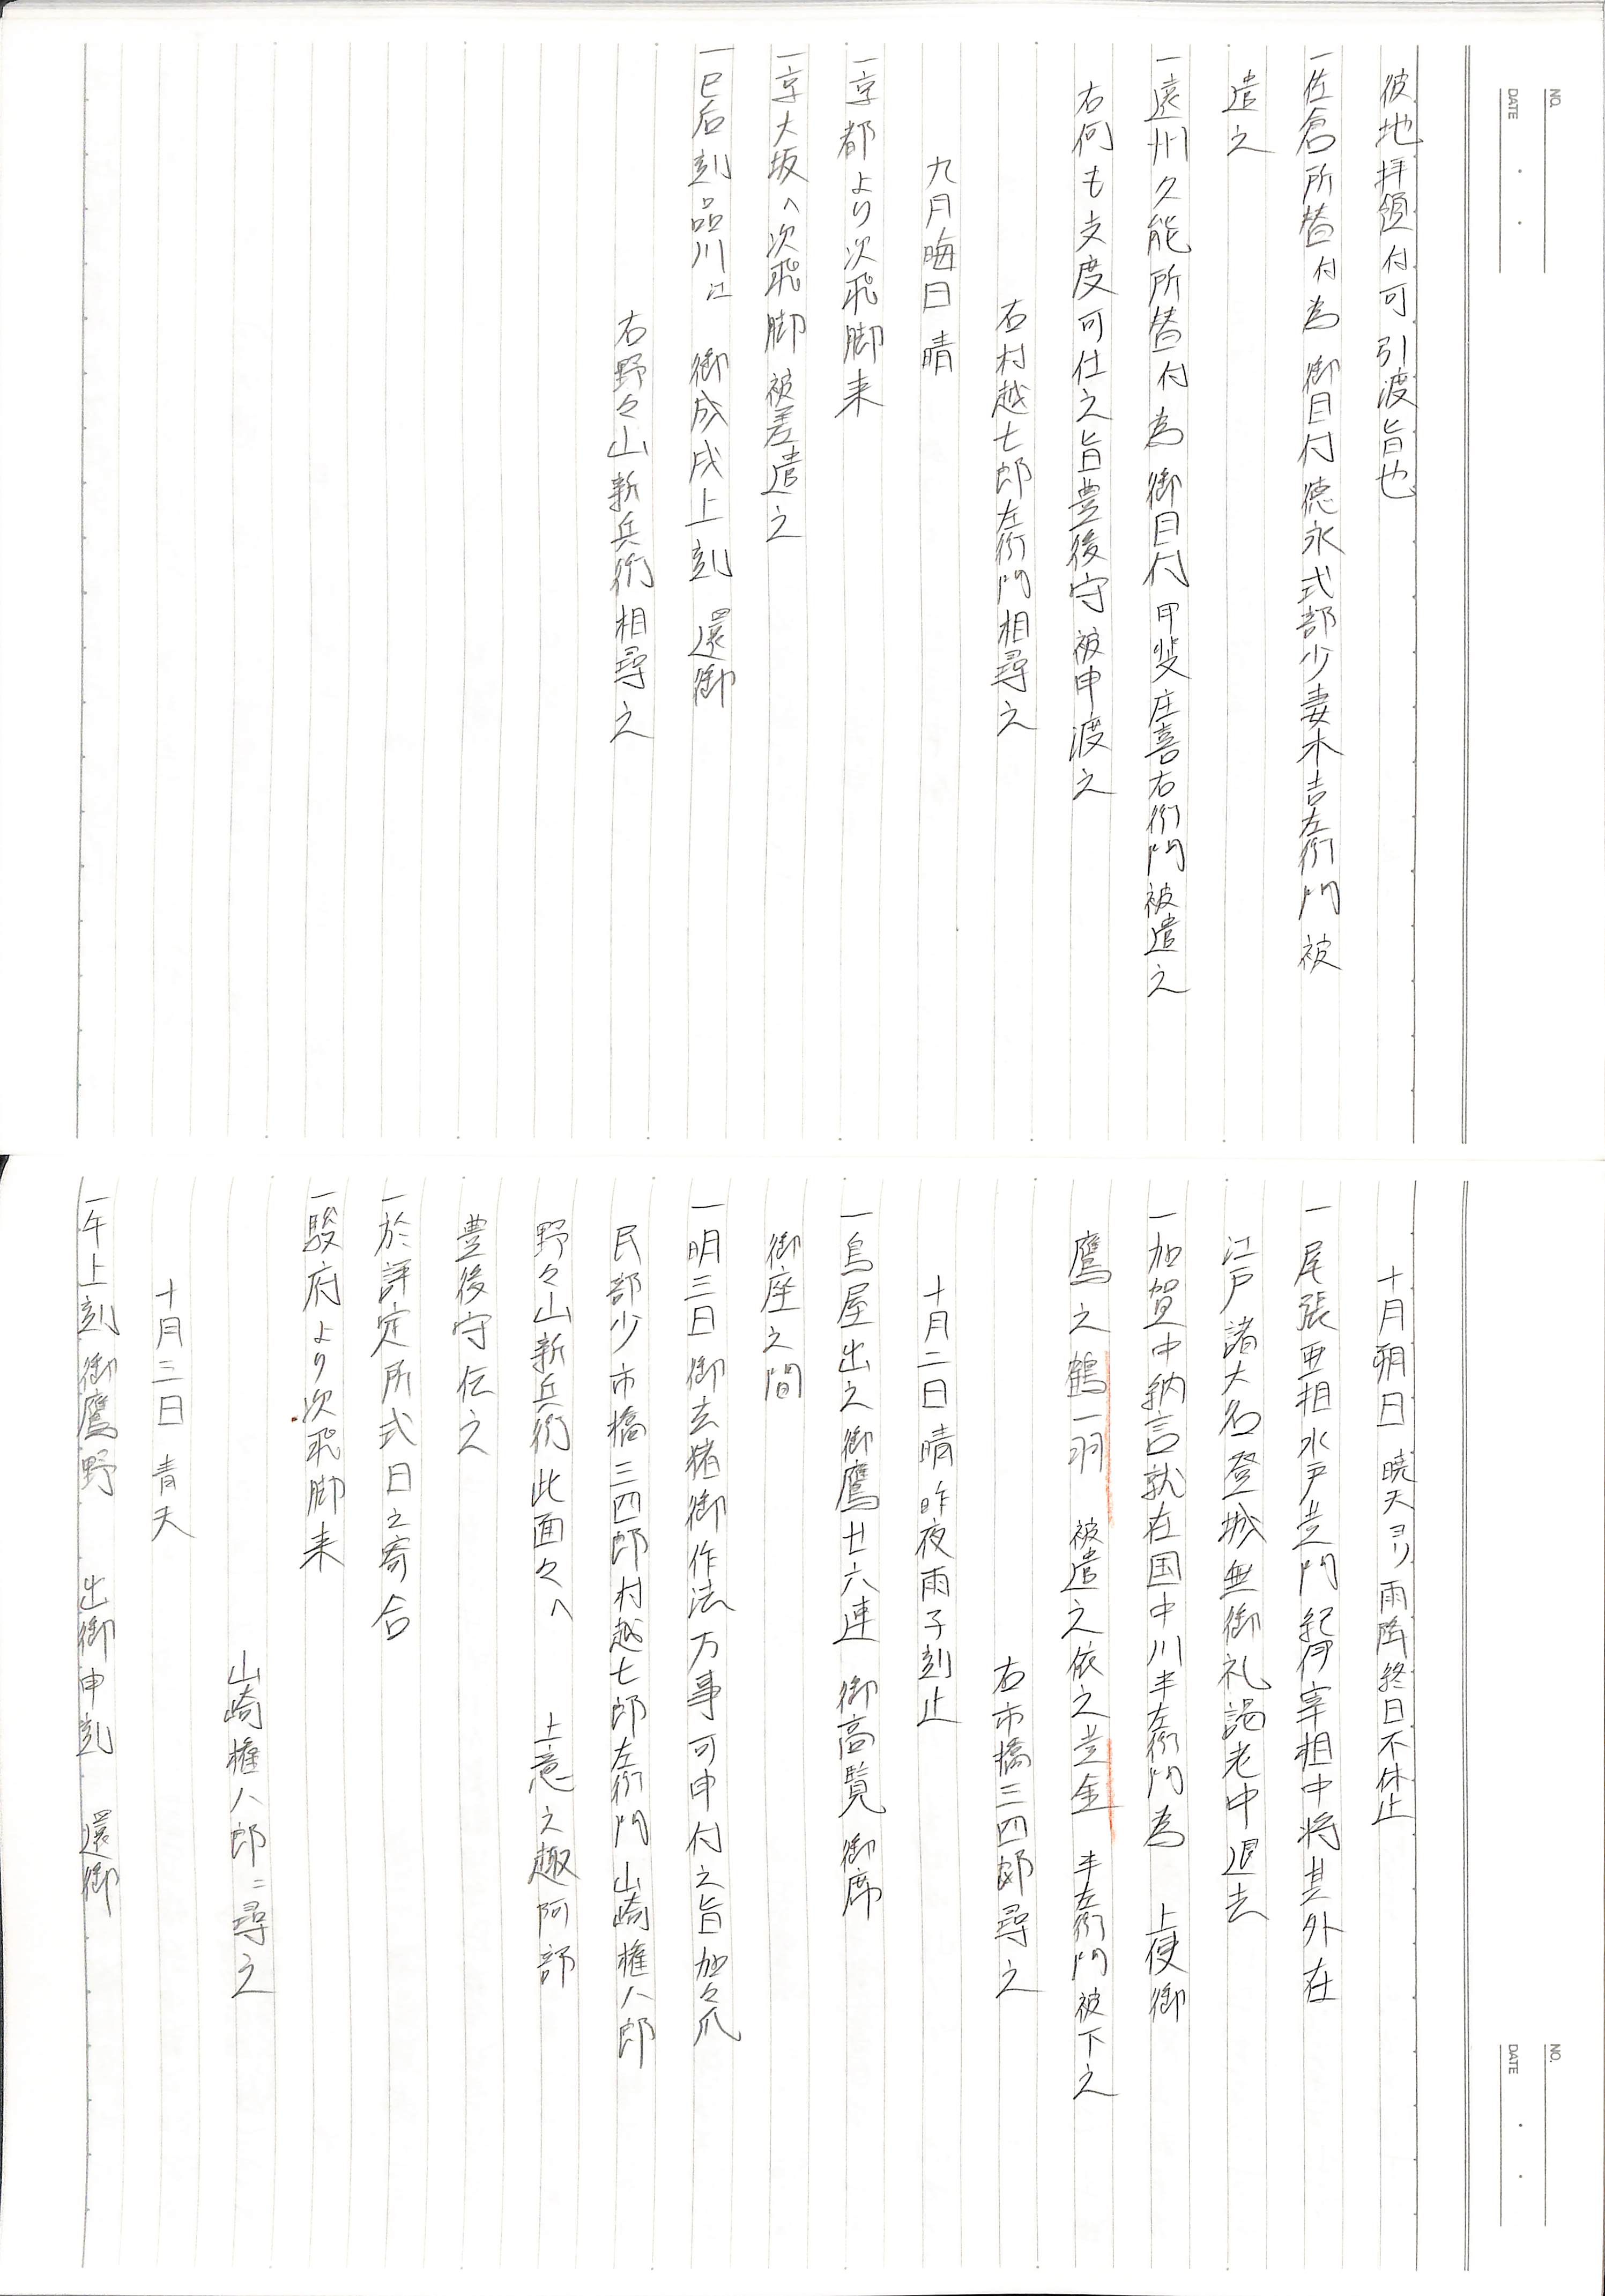 NO.
DATE
彼地拝領付可引渡旨也
一佐倉所替付為 御目付徳永式部少妻木吉左衛門被
遣之
一遠州久能所替付為 御目付甲斐庄喜右衛門被遣之
右何も支度可仕之旨豊後守被申渡之
右村越七郎左衛門相尋之
九月晦日 晴
一京都より次飛脚来
一京大坂へ次飛脚被差遣之
一巳后刻品川江 御成戌上刻 還御
右野々山新兵衛相尋之
NO.
DATE
十月朔日 暁天ヨリ雨降終日不休止
一尾張亜相水戸黄門紀伊宰相中将其外在
江戸諸大名登城無御礼謁老中退去
一加賀中納言就在国中川半左衛門為 上使御
鷹之鶴一羽 被遣之依之黄金 半左衛門被下之
右市橋三四郎尋之
十月二日 晴 昨夜雨子刻止
一鳥屋出之御鷹廿六連 御高覧 御席
御座之間
一明三日御玄猪御作法万事可申付之旨加々爪
民部少市橋三四郎村越七郎左衛門山崎権八郎
野々山新兵衛此面々へ 上意之趣阿部
豊後守伝之
一於評定所式日之寄合
一駿府より次飛脚来
山崎権八郎ニ尋之
十月三日 青天
一午上刻御鷹野 出御申刻 還御